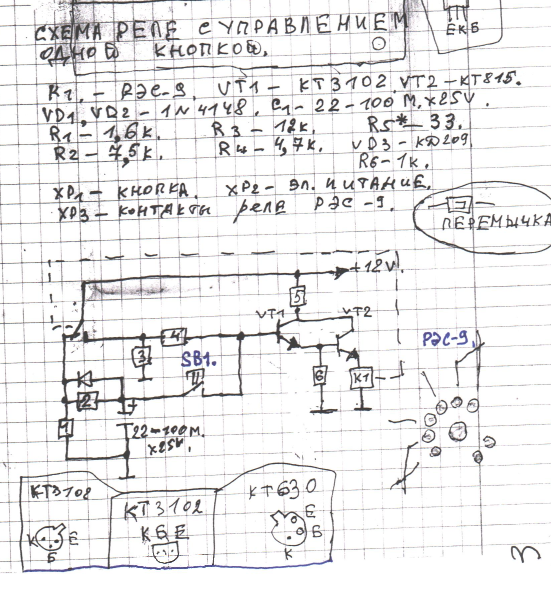 СХЕМА РЕЛЕ С УПРАВЛЕНИЕМ
ОДНОЙ КНОПКОЙ.
Е К Б
R1. – РЭС-9. VT1 – КТ3102. VT2 – КТ815.
VD1, VD2 – 1N4148. C1 – 22-100 М. x25V.
R1 – 1,6к. R3 – 12к. R5* – 33.
R2 – 7,5к. R4 – 4,7к. VD3 – КД209.
R6 – 1к.
ХР1 – КНОПКА. ХР2 – ЭЛ. ПИТАНИЕ.
ХР3 – КОНТАКТЫ реле РЭС-9.
ПЕРЕМЫЧКА
+12V.
5
VT1 VT2
4
РЭС-9.
3
SB1.
6
К1
2
+
1
22-100М.
x25V.
КТ3102
К Е
Б
КТ3102
К Б Е
КТ630
Е
Б
К
3